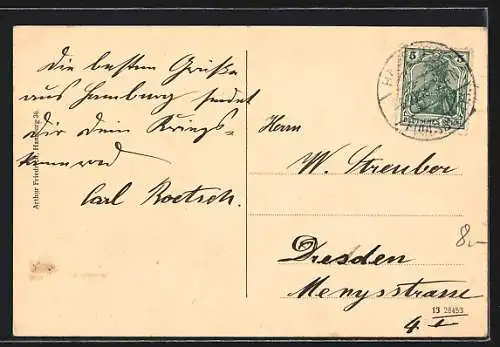 Die besten Grüße
aus Hamburg sendet
dir dein Kriegs-
kamerad
Carl Roetsch.
Arthur Friedrich, Hamburg 36.
5 5
Herrn
W. Streuber
Dresden
Menysstrasse
4. I
8.-
13 28453